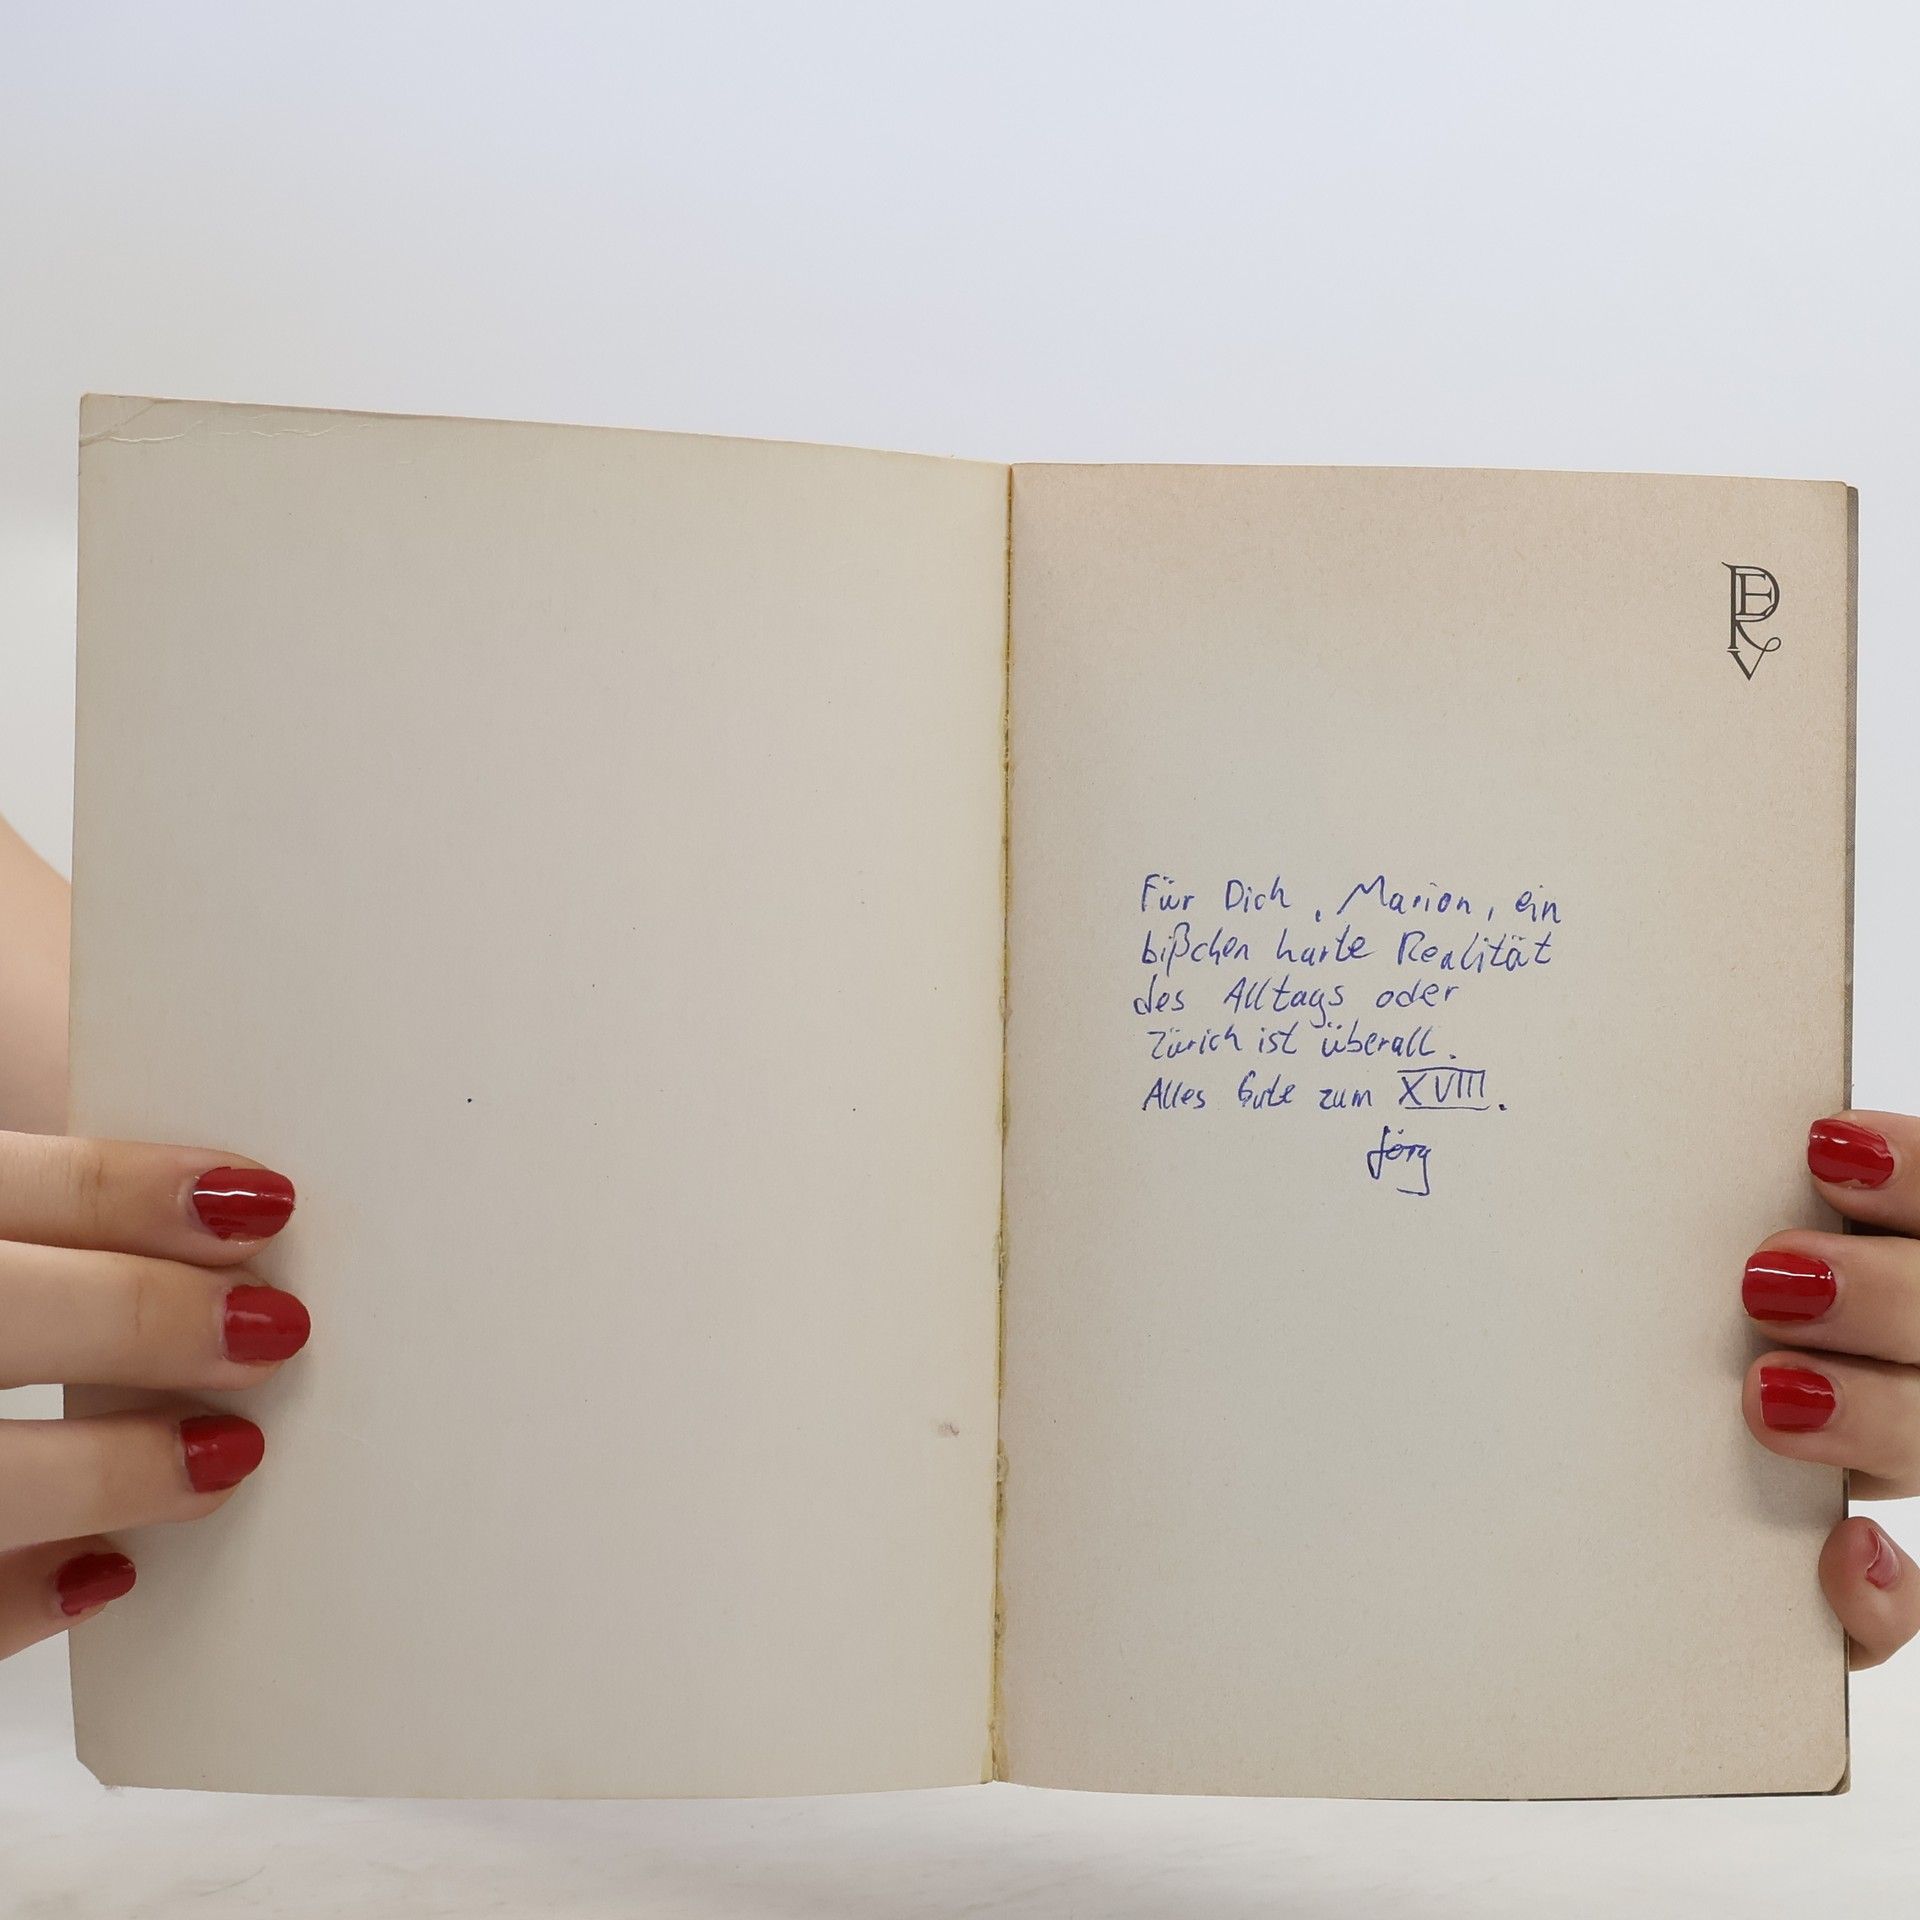 PERV
Für Dich, Marion, ein
bißchen harte Realität
des Alltags oder
Zürich ist überall.
Alles Gute zum XVIII.
Jörg